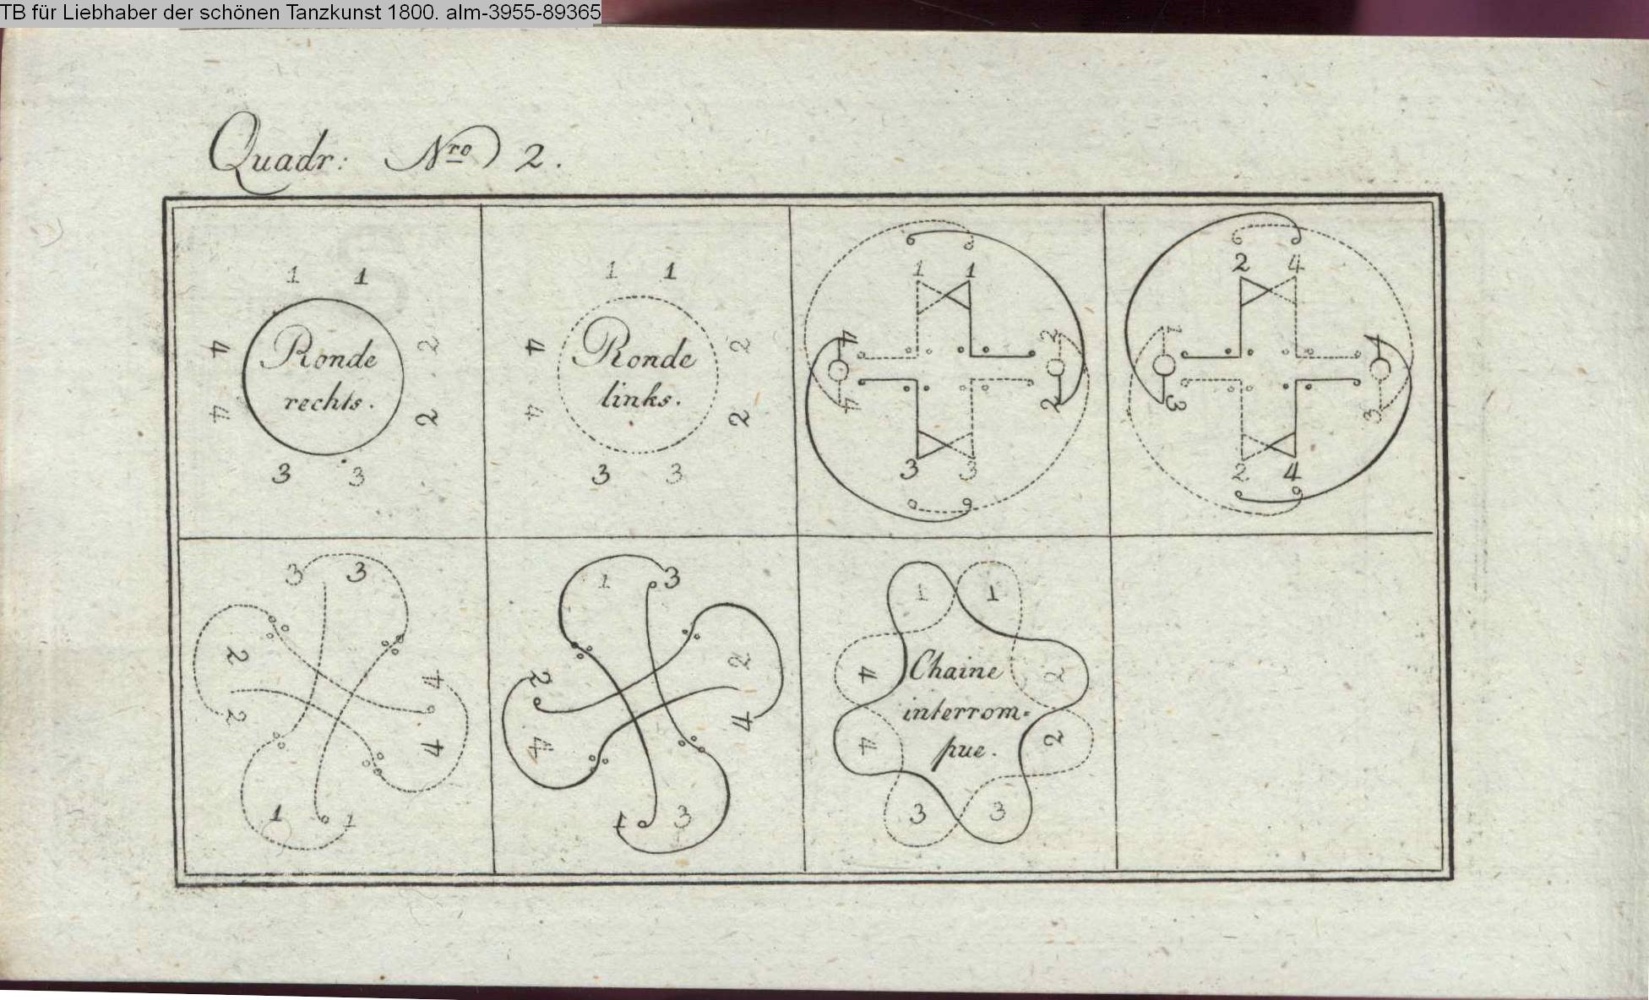 TB für Liebhaber der schönen Tanzkunst 1800. alm-3955-89365
Quadr: Nro 2.
1 1
4 2
4 2
3 3
Ronde
rechts.
1 1
4 2
4 2
3 3
Ronde
links.
1 1
4 2
4 2
3 3
2 4
1 4
3 3
2 4
3 3
2 4
2 4
1 1
1 3
2 2
4 4
1 3
1 1
4 2
4 2
3 3
Chaine
interrom-
pue.